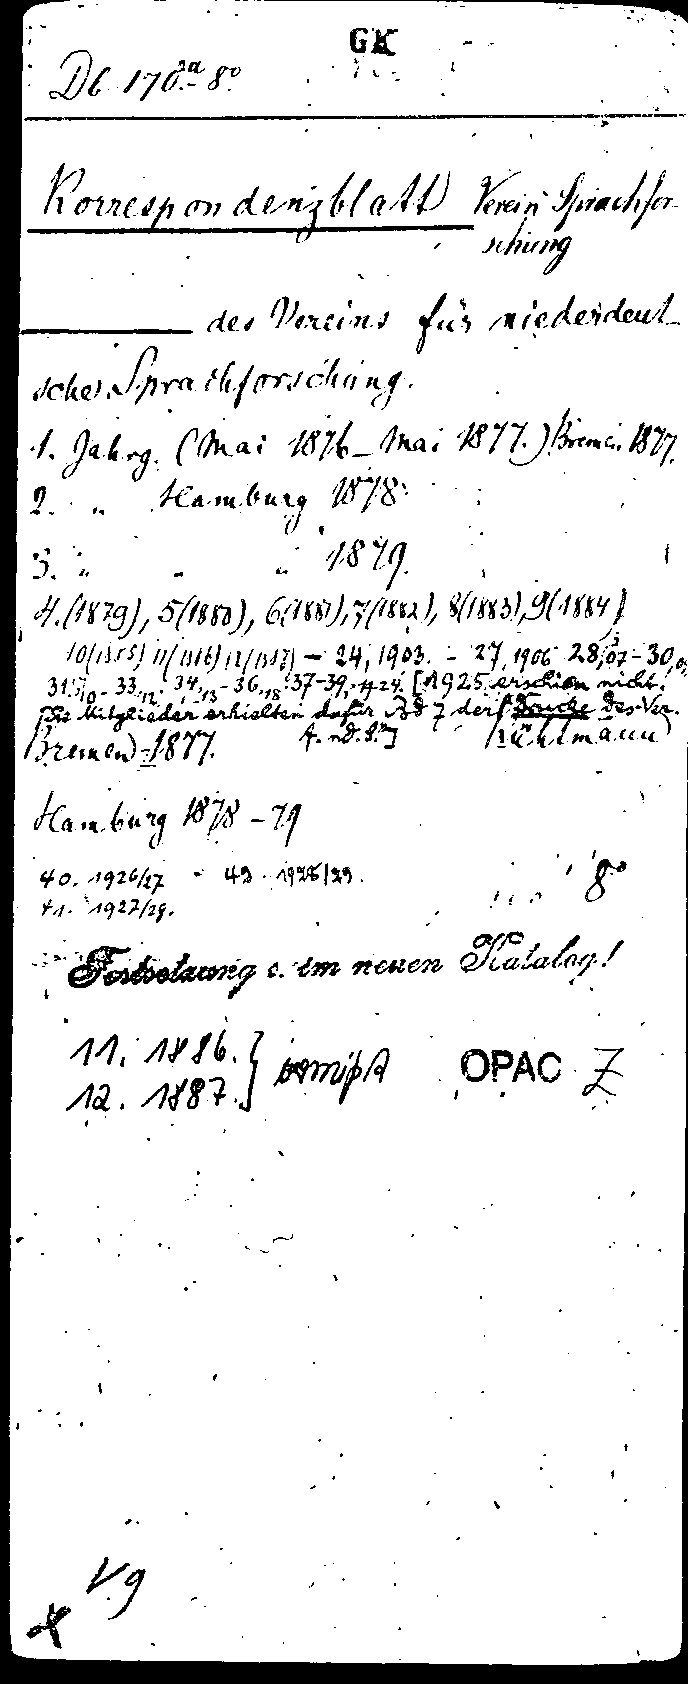 GK
Db 170 8°
Korrespondenzblatt Verein Sprachfor-
schung
des Vereins für niederdeut-
sche Sprachforschung.
1. Jahrg. (Mai 1876 - Mai 1877.) Bremen 1877.
2. " Hamburg 1878.
3. " " " 1879.
4.(1879), 5(1880), 6(1881), 7(1882), 8(1883), 9(1884)
10(1885) 11(1886) 12(1887) - 24, 1903. - 27, 1906 28, 07 - 30, 09
31, 10 - 33, 12. 34, 13 - 36, 18. 37-39, -24. [1925 erschien nicht.
Die Mitglieder erhielten dafür Bd 7 der Drucke des Ver.
f. nd. S."]
Bremen 1877. Kühtmann
Hamburg 1878 - 79
40. 1926/27 - 42. 1928/29.
41. 1927/28.
8°
Fortsetzung s. im neuen Katalog!
11. 1886. } vermißt OPAC Z
12. 1887.
V9